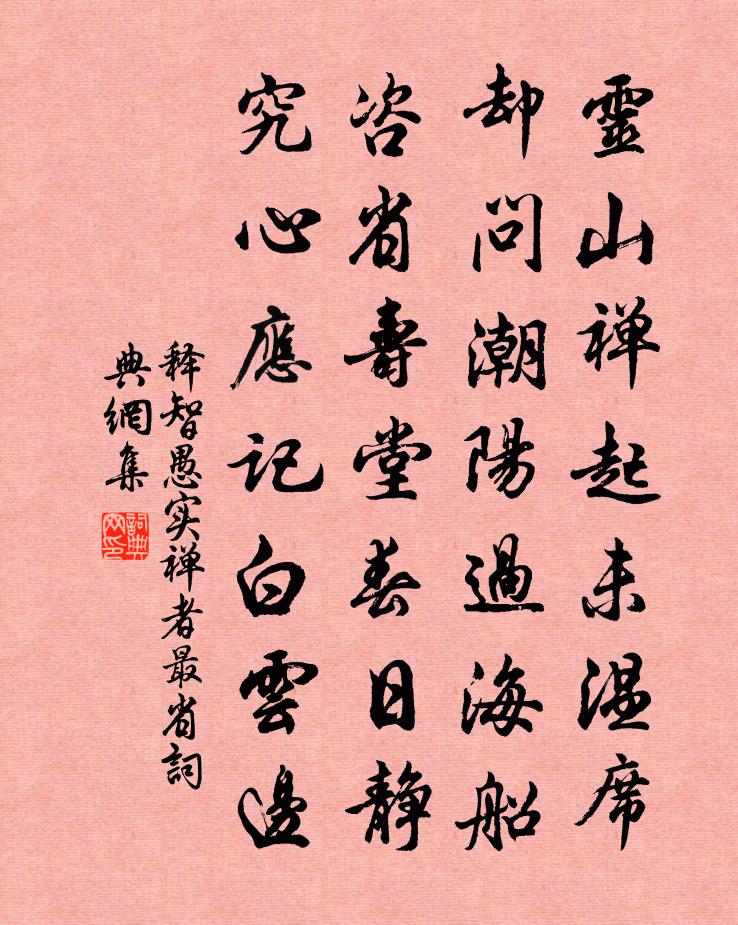 靈山禅起未温席
却問潮陽過海船
咨省壽堂春日静
究心應記白雲邊
释智愚实禅者最省詞
典網集
詞典
网印